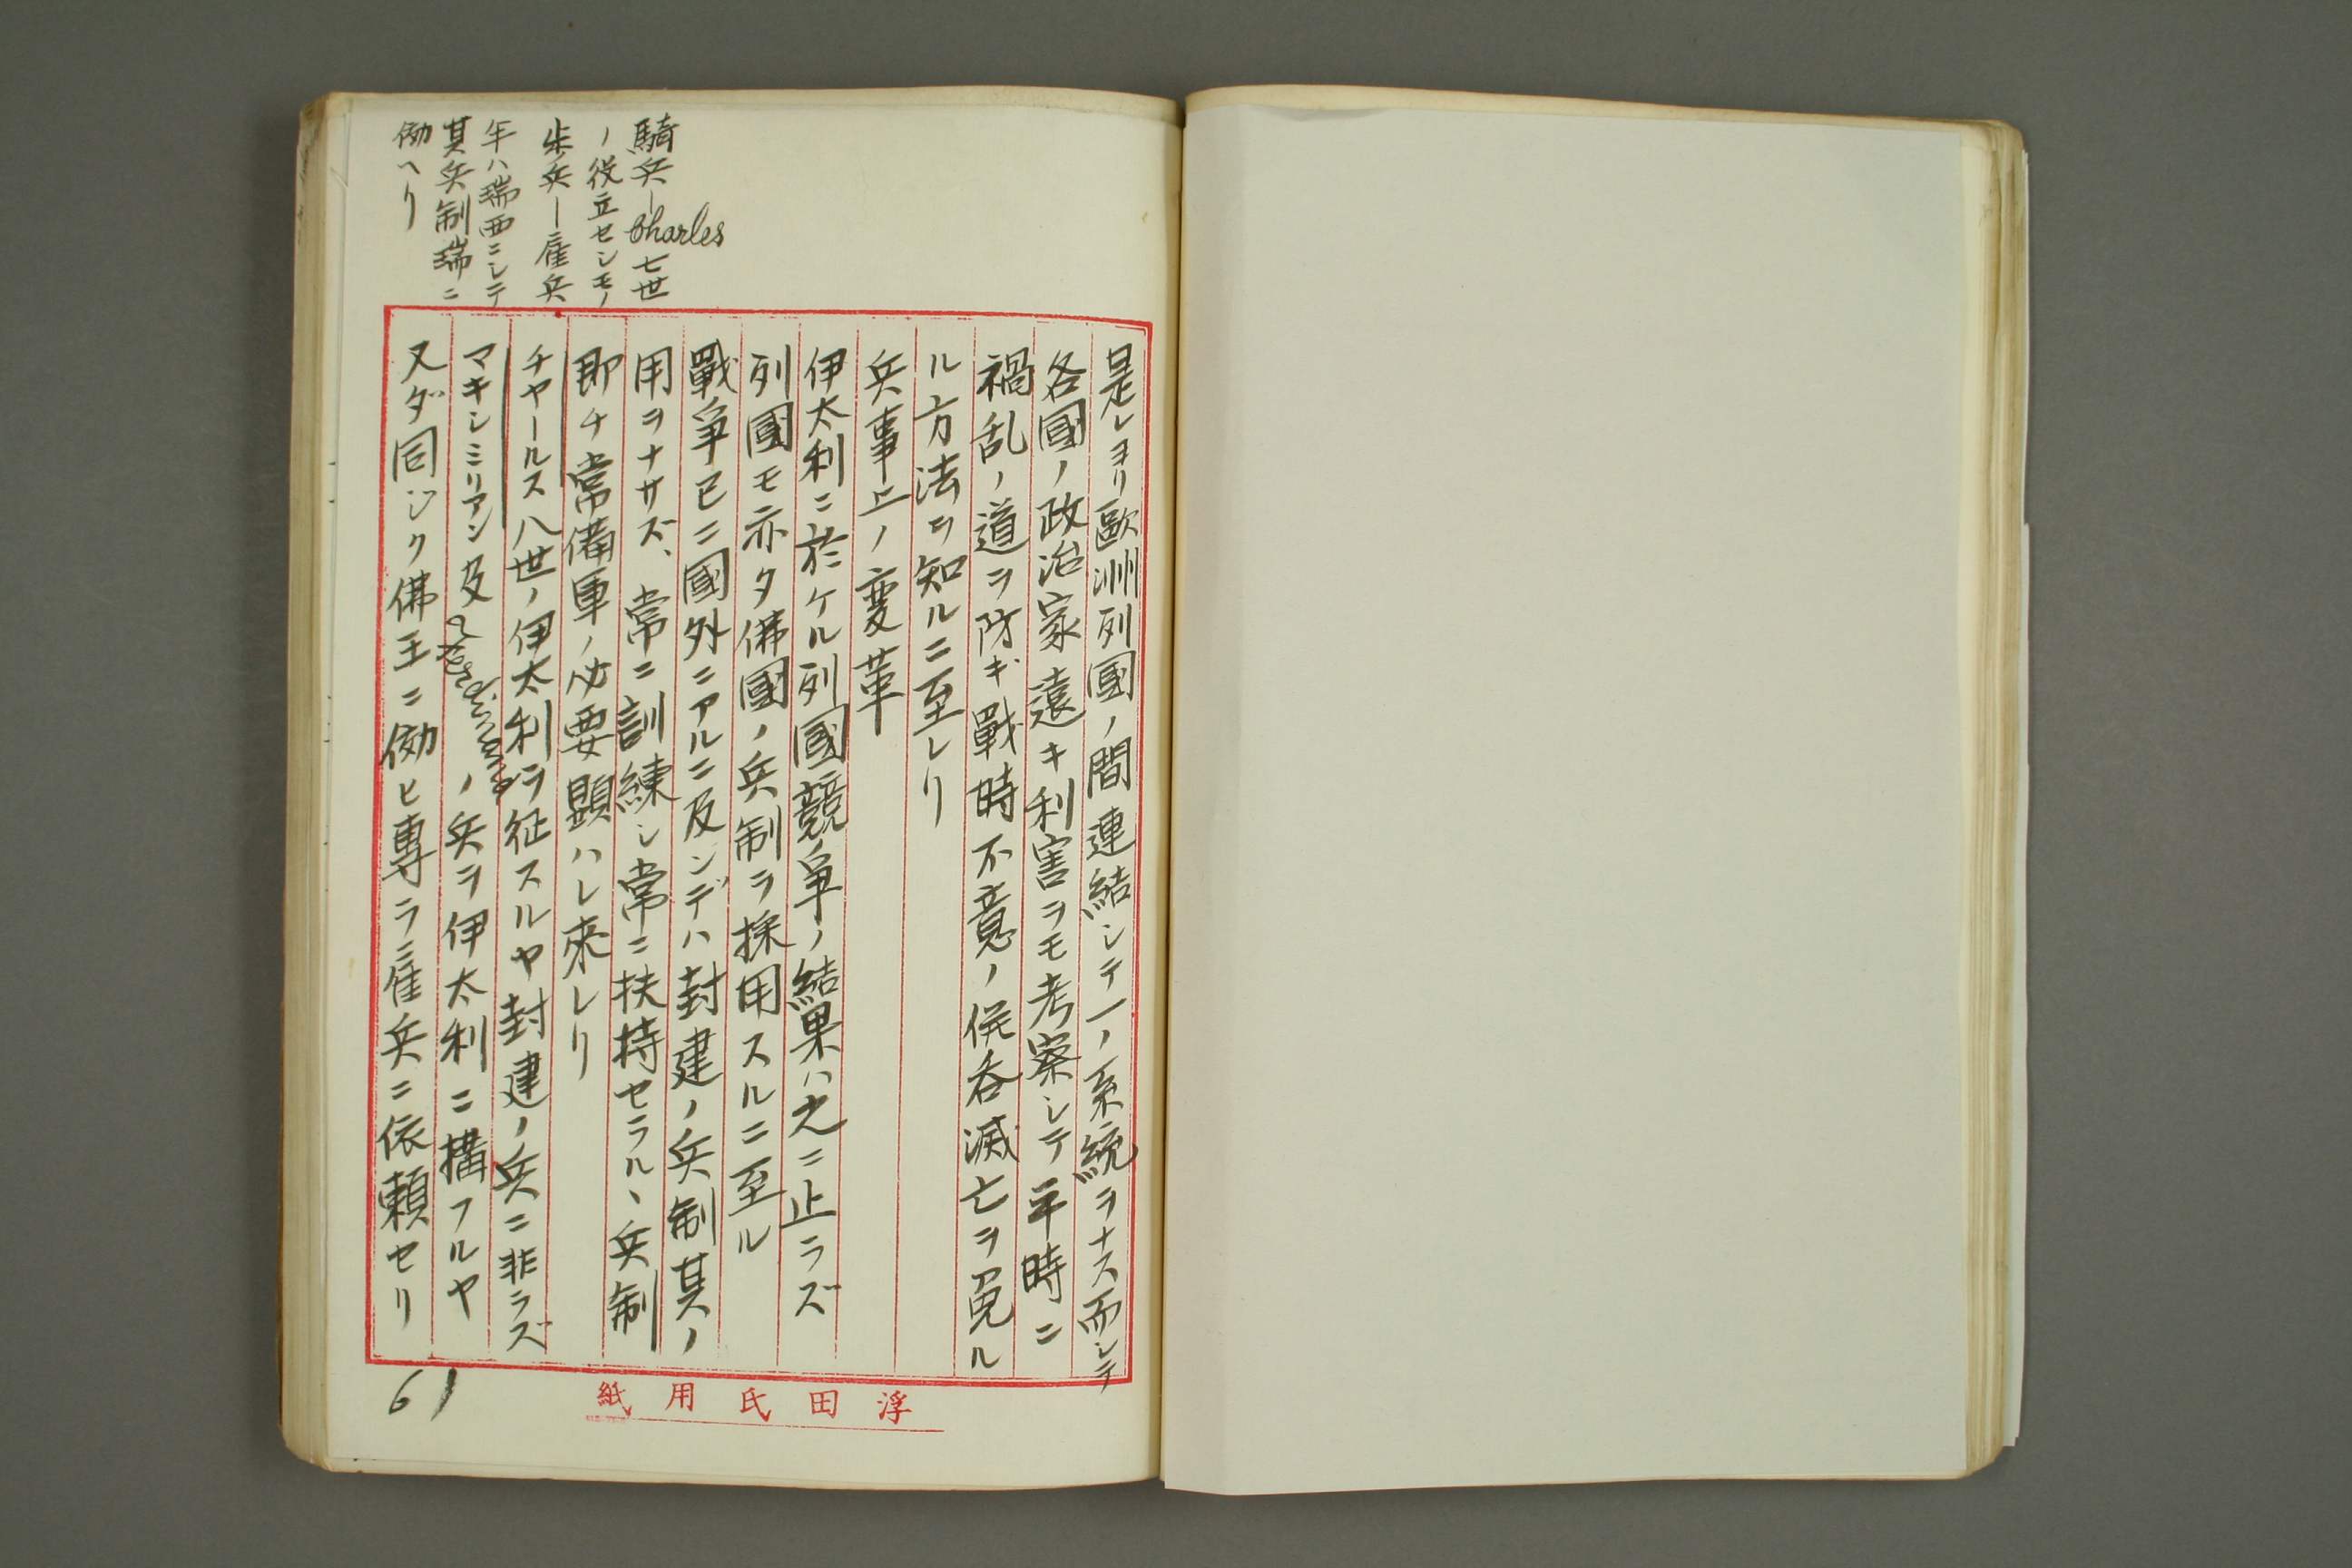 騎兵ーCharles七世
ノ役立セシモノ
歩兵ー雇兵
年ハ瑞西ニシテ
其兵制瑞ニ
傚ヘリ
是レヨリ歐洲列國ノ間連結シテ一ノ系統ヲナス而シテ
各國ノ政治家遠キ利害ヲモ考察シテ平時ニ
禍乱ノ道ヲ防ギ戰時不意ノ併呑滅亡ヲ免ル
ル方法ヲ知ルニ至レリ
兵事上ノ変革
伊太利ニ於ケル列國競争ノ結果ハ之ニ止ラズ
列國モ亦タ佛國ノ兵制ヲ採用スルニ至ル
戰爭已ニ國外ニアルニ及ンデハ封建ノ兵制其ノ
用ヲナサズ、常ニ訓練シ常ニ扶持セラルヽ兵制
即チ常備軍ノ必要顕ハレ來レリ
チヤールス八世ノ伊太利ヲ征スルヤ封建ノ兵ニ非ラズ
マキシミリアン及Ferdinandノ兵ヲ伊太利ニ構フルヤ
又ダ同ジク佛王ニ傚ヒ專ラ雇兵ニ依頼セリ
61
浮田氏用紙